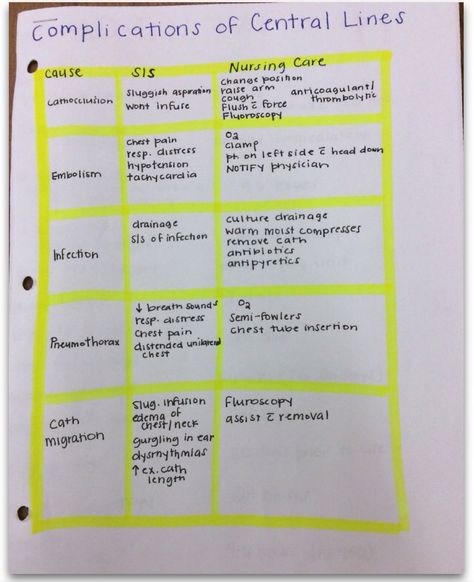 Complications of Central Lines
Cause S|S Nursing Care
Cath occlusion
sluggish aspiration
wont infuse
change position
raise arm
cough
Flush c̄ force
Fluoroscopy
anticoagulant/
thrombolytic
Embolism
chest pain
resp. distress
hypotension
tachycardia
O2
clamp
pt. on left side c̄ head down
NOTIFY physician
Infection
drainage
S|S of infection
culture drainage
warm moist compresses
remove cath
antibiotics
antipyretics
Pneumothorax
↓ breath sounds
resp. distress
chest pain
distended unilateral
chest
O2
semi-fowlers
chest tube insertion
Cath
migration
slug. infusion
edema of
chest/neck
gurgling in ear
dysrhythmias
↑ ex. cath
length
Fluroscopy
assist c̄ removal